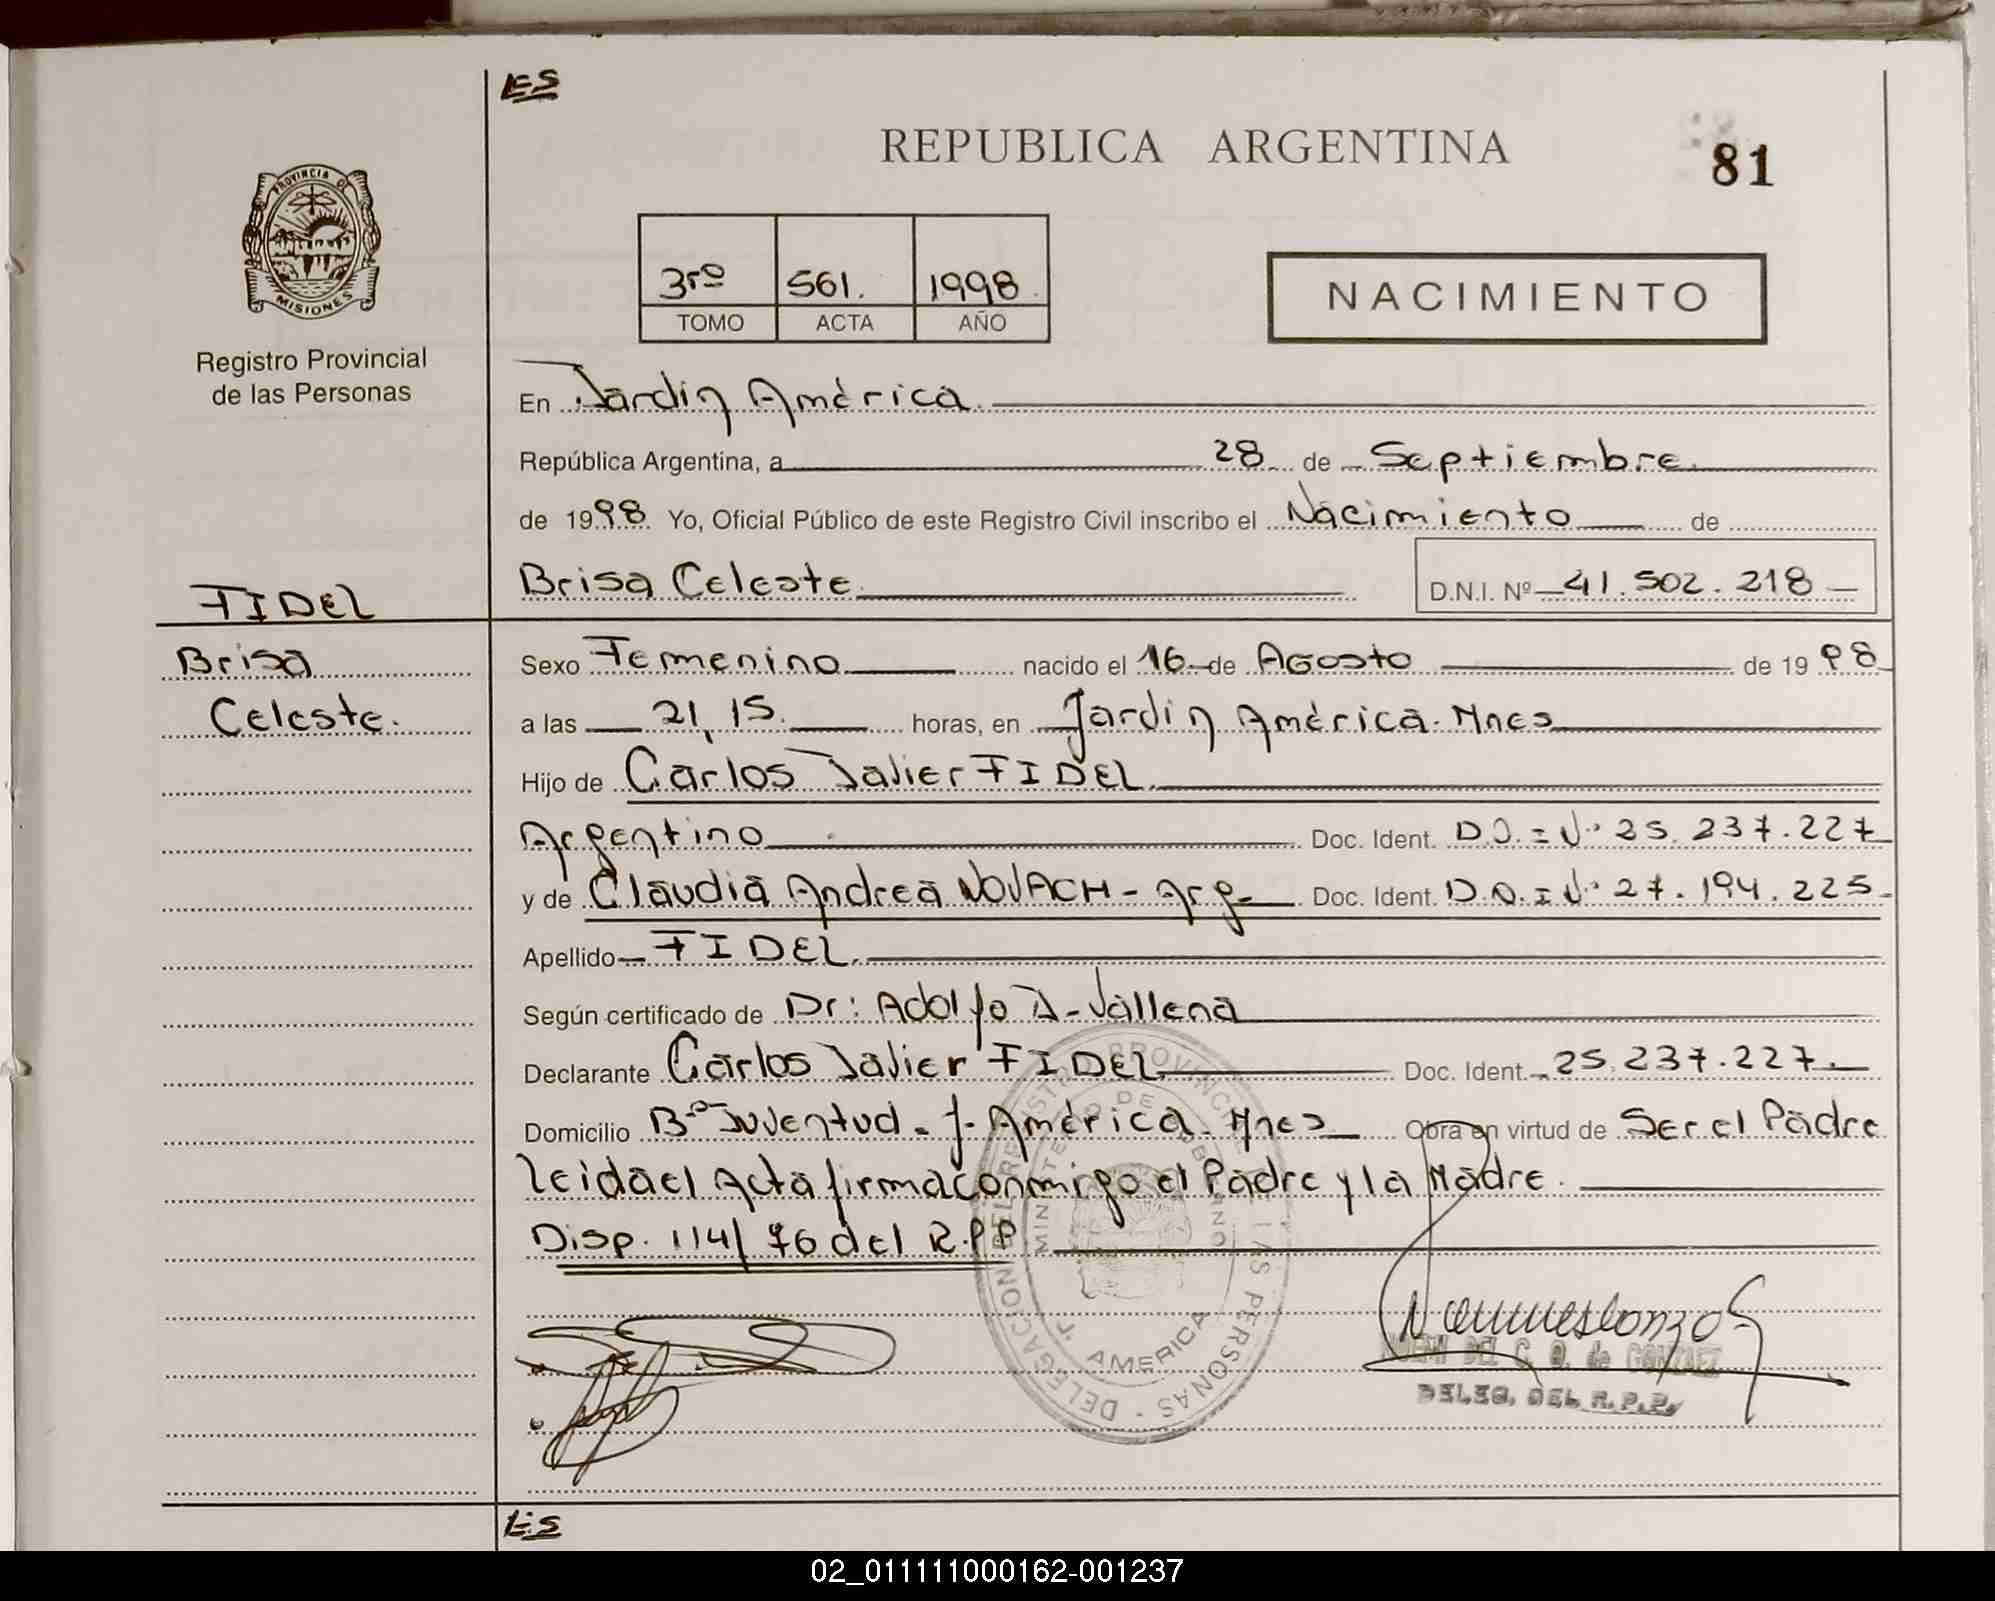 ES
REPUBLICA ARGENTINA
81
PROVINCIA DE
MISIONES
Registro Provincial
de las Personas
3ro 561. 1998.
TOMO ACTA AÑO
NACIMIENTO
En Jardin América.
República Argentina, a 28 de Septiembre.
de 1998. Yo, Oficial Público de este Registro Civil inscribo el Nacimiento de
Brisa Celeste. D.N.I. Nº 41.502.218
FIDEL
Brisa
Celeste.
Sexo Femenino nacido el 16 de Agosto de 1998
a las 21,15. horas, en Jardin América. Mnes
Hijo de Carlos Javier FIDEL.
Argentino Doc. Ident. D.N.I Nº 25.237.227
y de Claudia Andrea NOVACH - Arg. Doc. Ident. D.N.I Nº 27.194.225
Apellido FIDEL.
Según certificado de Dr: Adolfo Vallena
Declarante Carlos Javier FIDEL Doc. Ident. 25.237.227.
Domicilio Bº Juventud. J. América. Mnes Obra en virtud de Ser el Padre
leida el Acta firma conmigo el Padre y la Madre.
Disp. 114/76 del R.P.P
DELEGACION DEL REGISTRO PROVINCIAL DE LAS PERSONAS - DELEG
MINISTERIO DE GOBIERNO
J. AMERICA
NOEMI DEL C. Q. de GONZALEZ
DELEG. DEL R.P.P.
ES
02_011111000162-001237